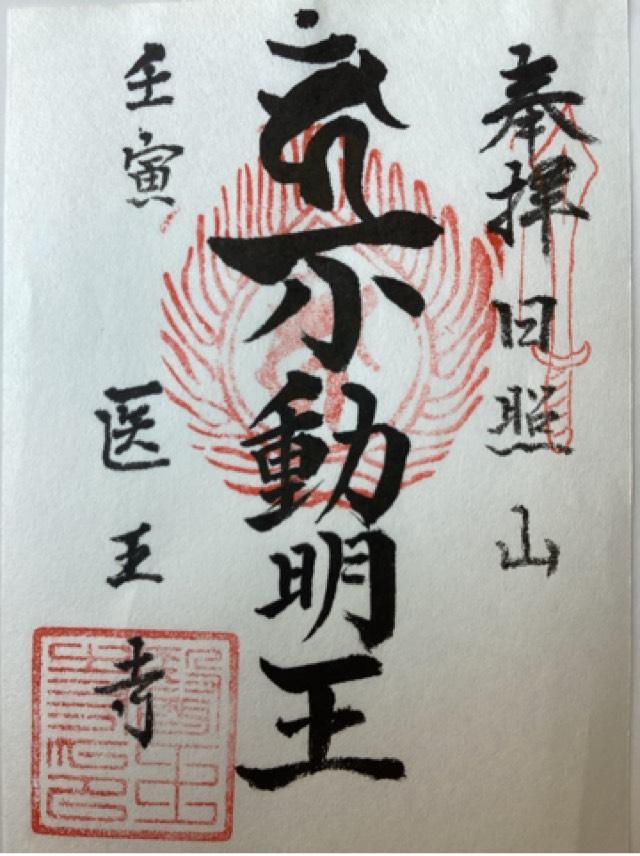 奉拝 日照山
不動明王
壬寅 医王寺